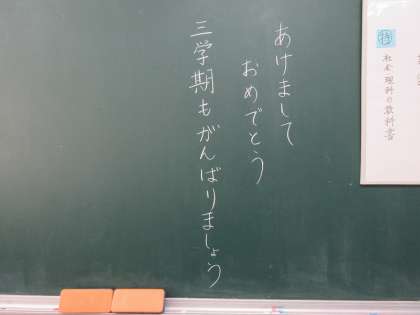 あけまして
おめでとう
三学期もがんばりましょう
特
社会 理科の教科書